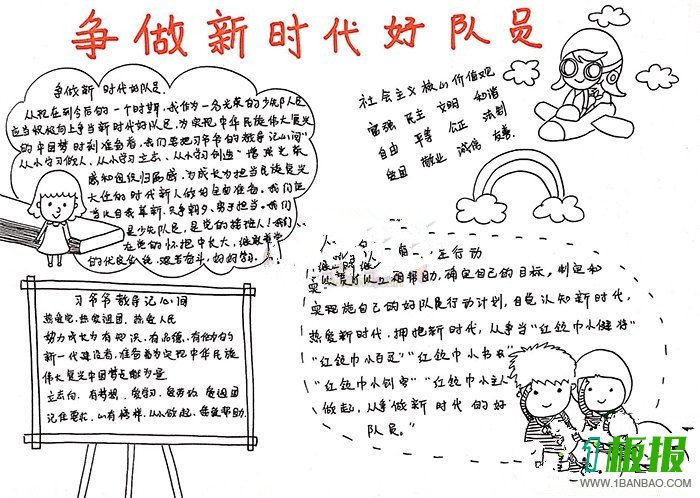 争做新时代好队员
争做新时代好队员
从现在到今后的一个时期,我作为一名光荣的少先队员
应当积极向上争当新时代好队员,为实现中华民族伟大复兴
的中国梦时刻准备着,我们要把习爷爷的教导记心间"
从小学习做人,从小学习立志,从小学习创造"增强光荣
感和组织归属感,为成长为担当民族复兴
大任的时代新人做好全面准备。我们
当 自我革新,只争朝夕,勇于担当。我们
是少先队员,是党的接班人!我们
在党的怀抱中长大,
的优良 ,艰苦奋斗,好好学习。
社会主义核心价值观
富强 民主 文明 和谐
自由 平等 公正 法制
爱国 敬业 诚信 友善
习爷爷教导记心间
热爱党,热爱祖团,热爱人民
努力成长为有知识、有品德、有作为的
新一代建设者,准备着为实现中华民族
伟大复兴中国梦贡献力量
立志向、有梦想、爱学习、爱劳动、爱祖国
记住要求,心有榜样,从小做起,接受帮助.
人 自 主行动
相帮助,确定自己的目标,制定和
实现施自己的好队员行动计划,自觉认知新时代,
热爱新时代,拥抱新时代,从争当"红领巾小健将"
"红领巾小百灵""红领巾小书 "
"红领巾小创客""红领巾小主人"
做起,从争做新时代的好
队员。"
板报
WWW.1BANBAO.COM